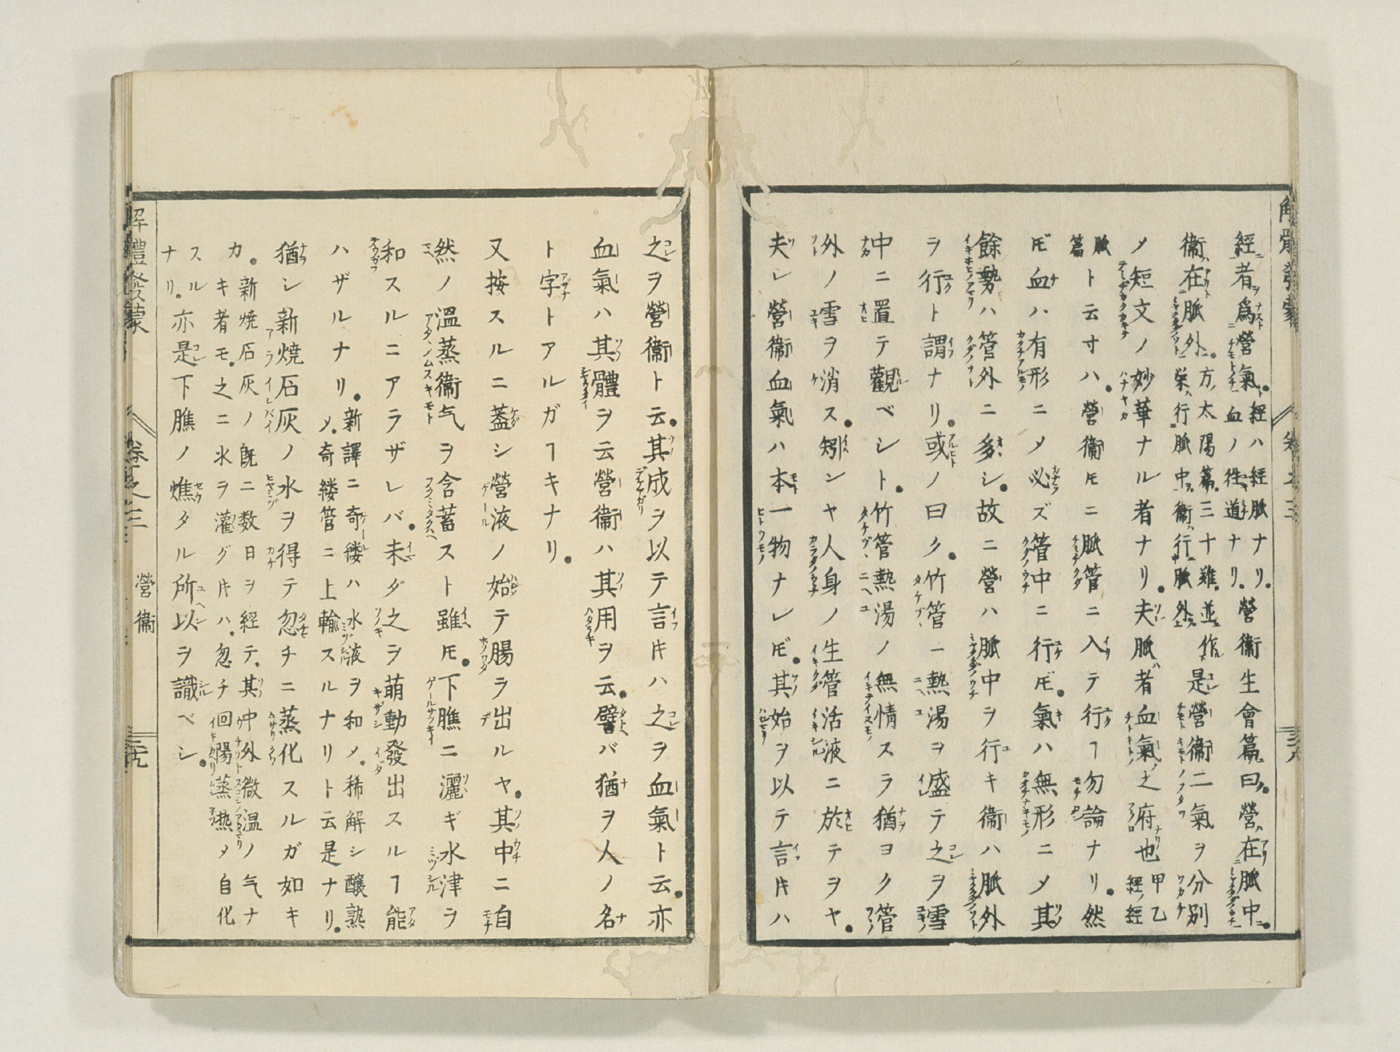 經者爲營氣。經ハ經脈ナリ。血ノ徃道ナリ。營衞生會篇曰。營在脈中。
衞在脈外。方太陽篇。三十難並作榮行脈中衞行脈外。是營衞二氣ヲ分別
メ短文ノ妙華ナル者ナリ。夫脈者血氣之府也甲乙經ノ經
脈篇ト云寸ハ。營衞𪜈ニ脈管ニ入テ行ヿ勿論ナリ。然
𪜈血ハ有形ニメ必ズ管中ニ行𪜈。氣ハ無形ニメ其
餘勢ハ管外ニ多シ。故ニ營ハ脈中ヲ行キ衞ハ脈外
ヲ行ト謂ナリ。或ノ曰ク。竹管ニ熱湯ヲ盛テ之ヲ雪
中ニ置テ觀ベシト。竹管熱湯ノ無情スラ猶ヨク管
外ノ雪ヲ消ス。矧ンヤ人身ノ生管活液ニ於テヲヤ。
夫レ營衞血氣ハ本一物ナレ𪜈。其始ヲ以テ言片ハ
之ヲ營衞ト云。其成ヲ以テ言片ハ之ヲ血氣ト云。亦
血氣ハ其體ヲ云營衞ハ其用ヲ云。譬バ猶ヲ人ノ名
ト字トアルガヿキナリ。
又按スルニ蓋シ營液ノ始テ腸ヲ出ルヤ。其中ニ自
然ノ溫蒸衞气ヲ含蓄スト雖𪜈。下膲ニ灑ギ水津ヲ
和スルニアラザレバ。未ダ之ヲ萌動發出スルヿ能
ハザルナリ。新譯ニ奇縷ハ水液ヲ和メ。稀解シ釀熟メ。奇縷管ニ上輸スルナリト云是ナリ。
猶シ新燒石灰ノ水ヲ得テ忽チニ蒸化スルガ如キ
カ。新燒石灰ノ既ニ数日ヲ経テ。其中外微温ノ气ナキ者モ。之ニ水ヲ灌グ片ハ。忽チ回陽蒸熱メ自化スル
ナリ。亦是下膲ノ燋タル所以ヲ識ベシ。
解體發蒙
卷之三
營衞
三十九